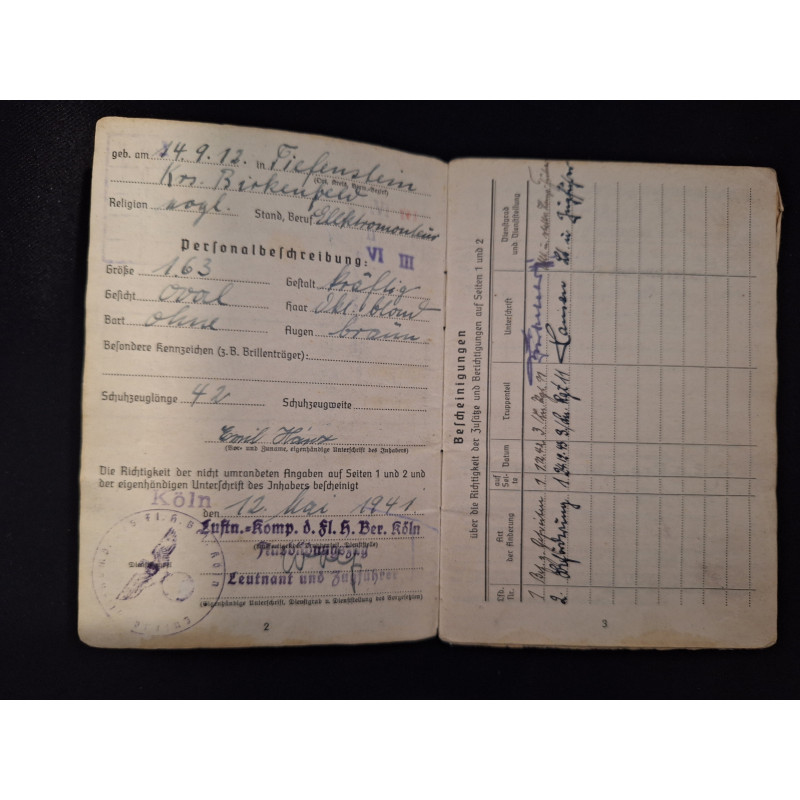 geb. am 14.9.12. in Tiefenstein
Krs. Birkenfeld
(Ort, Kreis, Verw.-Bezirk)
Religion evgl. Stand, Beruf Elektromonteur
Personalbeschreibung:
VI III
Größe 163 Gestalt kräftig
Gesicht oval Haar dkl. blond
Bart ohne Augen braun
Besondere Kennzeichen (z. B. Brillenträger):
Schuhzeuglänge 42 Schuhzeugweite
Emil
(Vor- und Zuname, eigenhändige Unterschrift des Inhabers)
Die Richtigkeit der nicht umrandeten Angaben auf Seiten 1 und 2 und
der eigenhändigen Unterschrift des Inhabers bescheinigt
Köln
den 12. Mai 1941.
Luftn.-Komp. d. Fl. H. Ber. Köln
Leutnant und Zugführer
(Eigenhändige Unterschrift, Dienstgrad u. Dienststellung des Vorgesetzten)
2
Bescheinigungen
über die Richtigkeit der Zusätze und Berichtigungen auf Seiten 1 und 2
Lfd. Nr. Art der Änderung auf Seite Datum Truppenteil Unterschrift Dienstgrad und Dienststellung
1 1
2. Beförderung 1 Hansen Lt. u. Zugführer
3